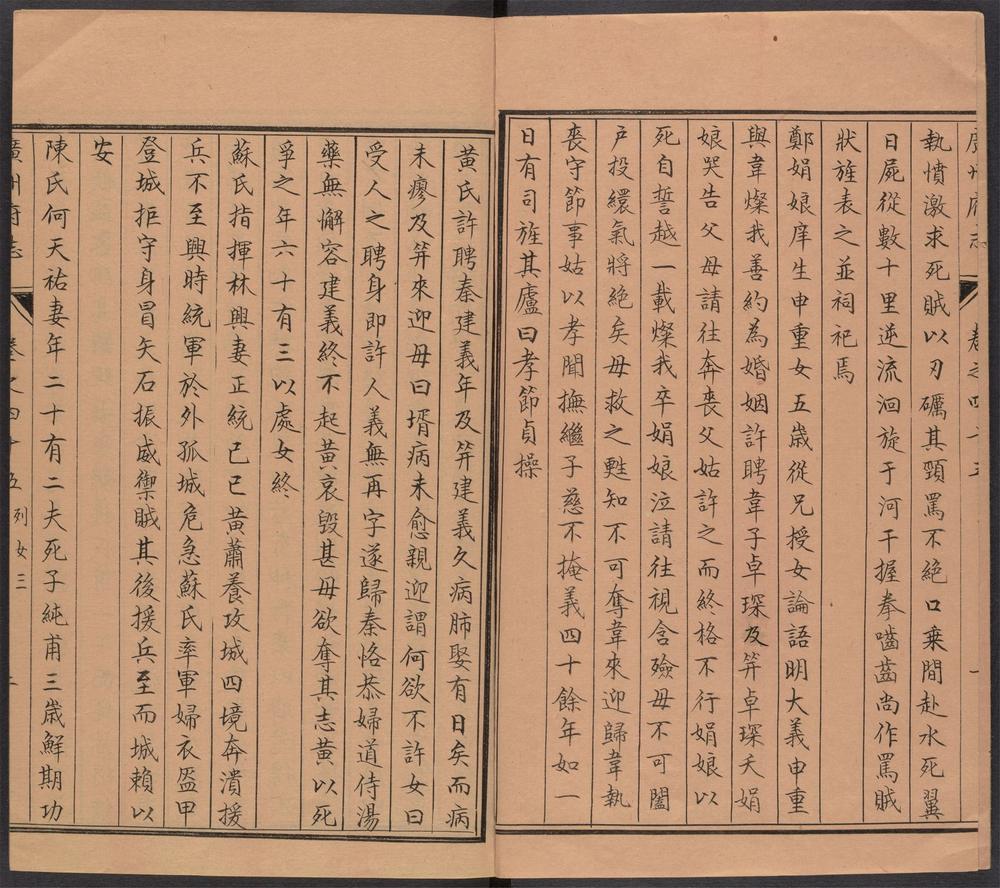 執憤激求死賊以刃礪其頸罵不絕口乘間赴水死翼
日屍從數十里逆流洄旋于河干握拳嚙齒尚作罵賊
狀旌表之並祠祀焉
鄭娟娘庠生申重女五歲從兄授女論語明大義申重
與韋燦我善約為婚姻許聘韋子卓琛及筓卓琛夭娟
娘哭告父母請往奔喪父姑許之而終格不行娟娘以
死自誓越一載燦我卒娟娘泣請往視含殮母不可闔
戶投繯氣將絕矣母救之甦知不可奪韋來迎歸韋執
喪守節事姑以孝聞撫繼子慈不掩義四十餘年如一
日有司旌其廬曰孝節貞操
黃氏許聘秦建義年及筓建義久病肺娶有日矣而病
未瘳及筓來迎母曰壻病未愈親迎謂何欲不許女曰
受人之聘身即許人義無再字遂歸秦恪恭婦道侍湯
藥無懈容建義終不起黃哀毀甚母欲奪其志黃以死
爭之年六十有三以處女終
蘇氏指揮林興妻正統己巳黃蕭養攻城四境奔潰援
兵不至興時統軍於外孤城危急蘇氏率軍婦衣盔甲
登城拒守身冒矢石振威禦賊其後援兵至而城賴以
安
陳氏何天祐妻年二十有二夫死子純甫三歲鮮期功
列女三